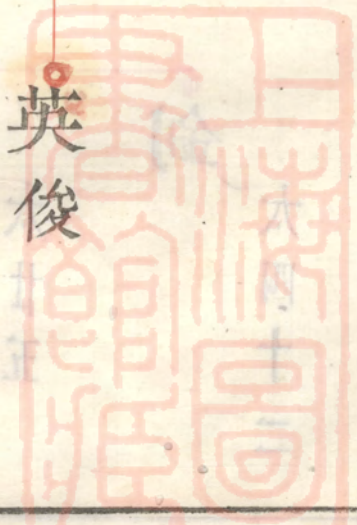 英俊
上海圖
書館藏